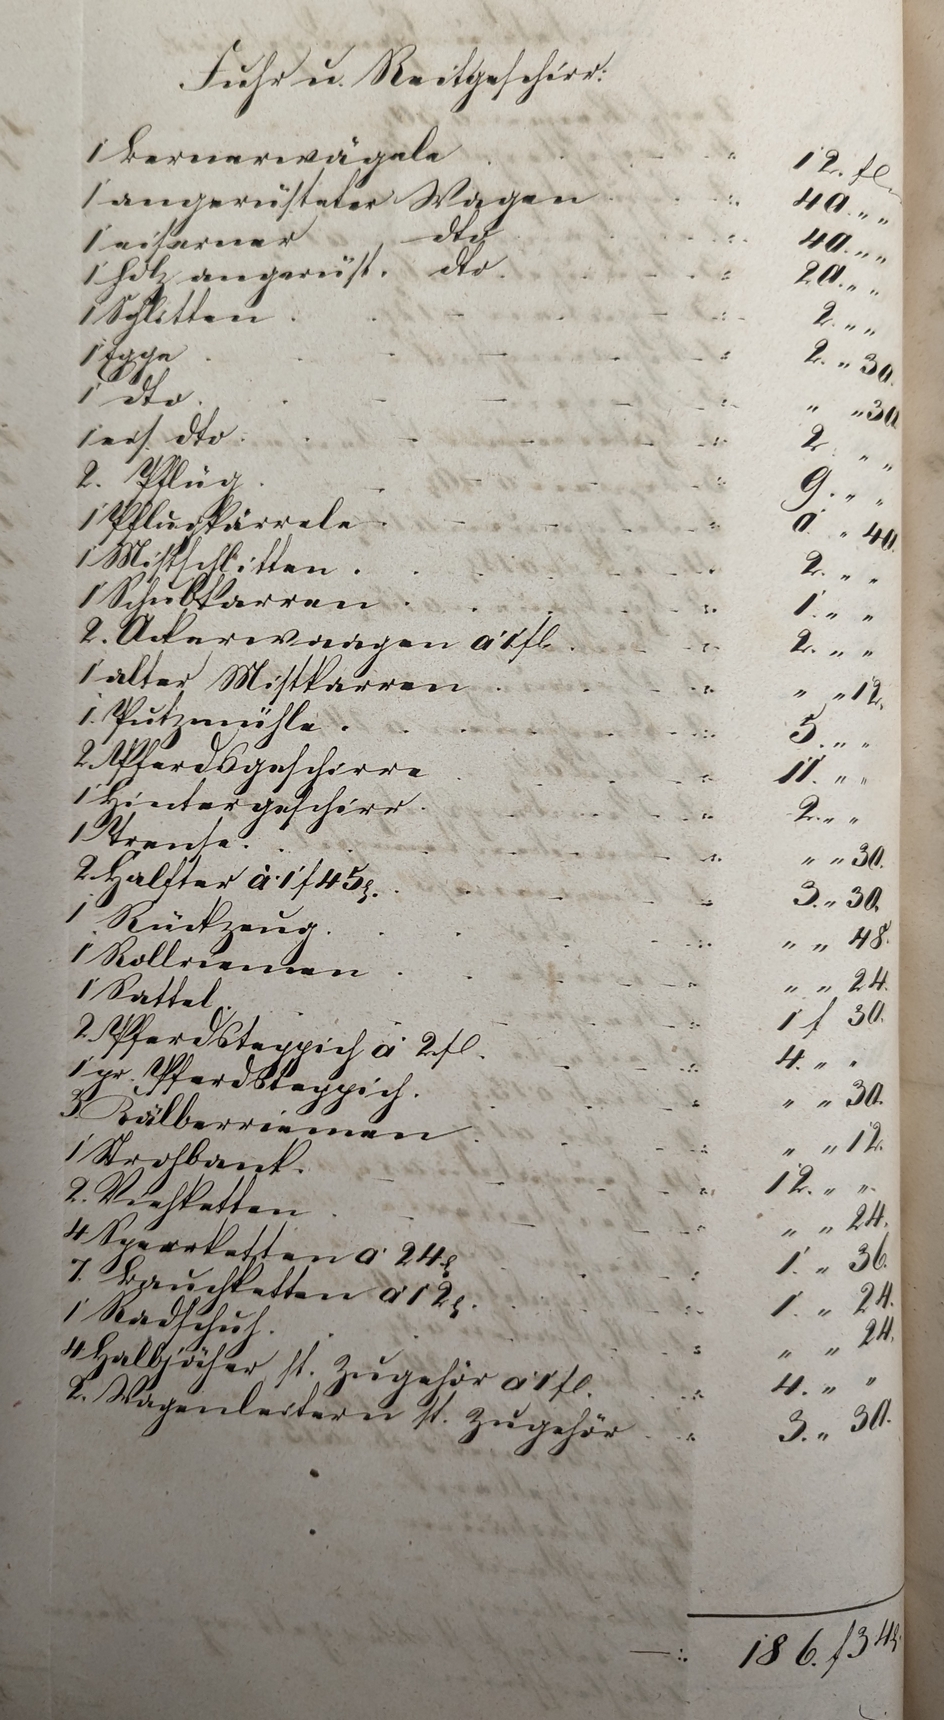 Fuhr u. Reitgeschirr:
1 Bernerwägele . . . - - : 12. fl.
1 angerüsteter Wagen . . - - : 40. „ „
1 eiserner dto . . - - : 40. „ „
1 holz angerüst. dto . - - : 20. „ „
1 Schlitten . . - - - : 2. „ „
1 Egge . - - - - : 2. „ 30.
1 dto. . - - - : „ „ 30
1 eis. dto . . - - - : 2. „ „
2. Pflüg . - - - : 9. „ „
1 Pflugkärrele . - - - : 0. „ 40.
1 Mistschlitten . . . - - : 2. „ „
1 Schubkarren . . . - - : 1. „ „
2. Ackerwaagen à 1 fl. . - - : 2. „ „
1 alter Mistkarren . . - - : „ „ 12.
1. Putzmühle . . . - - : 5. „ „
2. Pferdsgeschirre . - - : 11. „ „
1 Hintergeschirr . . - - : 2. „ „
1 Trense . . - - - : „ „ 30.
2. Halfter à 1 f 45 x. . - - : 3. „ 30.
1 Rückzeug . . . - - : „ „ 48.
1 Rollriemen . . - - : „ „ 24.
1 Sattel . - - - : 1 f 30.
2. Pferdsteppich à 2 fl. . - - : 4. „ „
1 gr. Pferdsteppich. . - - : „ „ 30.
3. Kälberriemen . - - : „ „ 12.
1 Strohbank. . - - : 12. „ „
2. Viehketten . - - - : „ „ 24.
4 Sperrketten à 24 x . - - : 1. „ 36.
7. Bauchketten à 12 x. . - - : 1. „ 24.
1 Radschuh. . . - - : „ „ 24.
4 Halbjöcher st. Zugehör à 1 fl. . - : 4. „ „
2. Wagenleitern st. Zugehör . - : 3. „ 30.
— : 186. f 34 x.